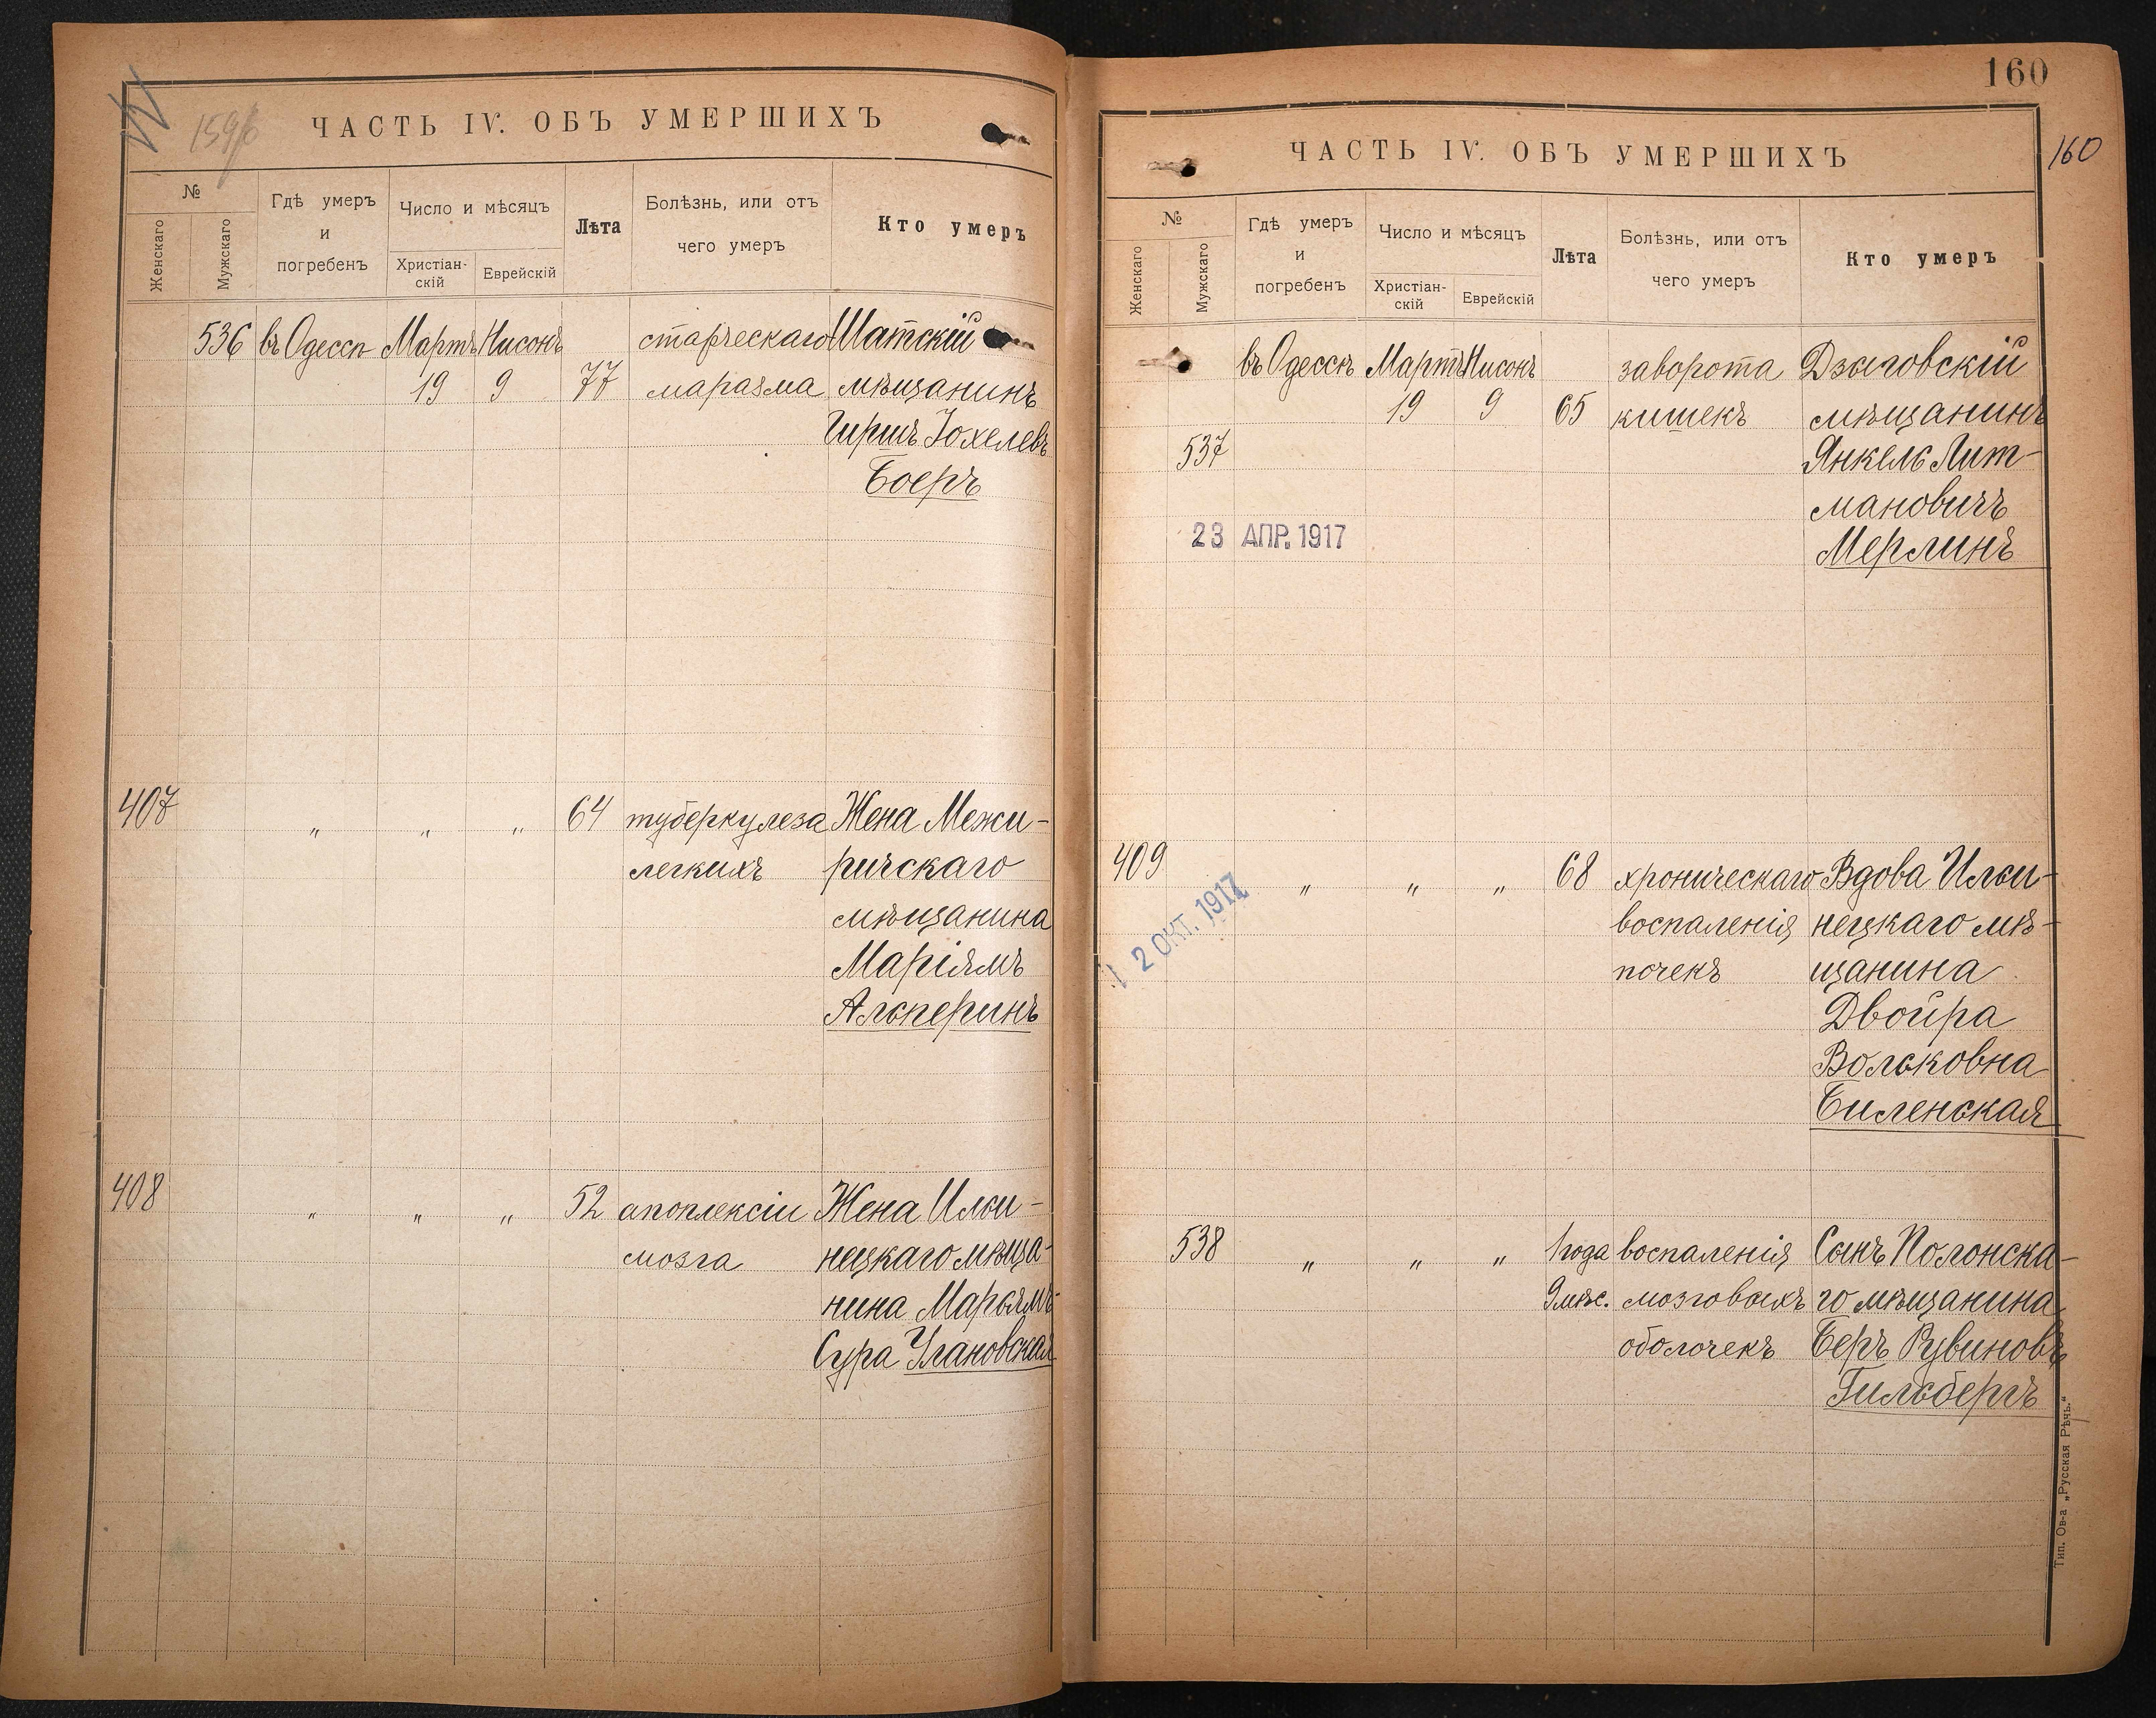 159/б
ЧАСТЬ IV. ОБЪ УМЕРШИХЪ
№
Женскаго
Мужскаго
Гдѣ умеръ
и
погребенъ
Число и мѣсяцъ
Христіан-
скій
Еврейскій
Лѣта
Болѣзнь, или отъ
чего умеръ
Кто умеръ
536 въ Одессѣ Мартъ Нисонъ старческаго Шатскій
19 9 77 маразма мѣщанинъ
Гиршъ Іохелевъ
Боеръ
407 " " " 64 туберкулеза Жена Межи-
легкихъ ричскаго
мѣщанина
Маріямъ
Альперинъ
408 " " " 52 апоплексіи Жена Ильи-
мозга нецкаго мѣща-
нина Марьямъ-
Сура Улановская
160
160
ЧАСТЬ IV. ОБЪ УМЕРШИХЪ
№
Женскаго
Мужскаго
Гдѣ умеръ
и
погребенъ
Число и мѣсяцъ
Христіан-
скій
Еврейскій
Лѣта
Болѣзнь, или отъ
чего умеръ
Кто умеръ
въ Одессѣ Мартъ Нисонъ заворота Дзыговскій
19 9 65 кишекъ мѣщанинъ
537 Янкель Лит-
мановичъ
23 АПР. 1917
Мерлинъ
409 " " " 68 хроническаго Вдова Ильи-
воспаленія нецкаго мѣ-
2 ОКТ. 1917
почекъ щанина
Двойра
Вольковна
Биленская
538 " " " 1 года воспаленія Сынъ Полонска-
9 мѣс. мозговыхъ го мѣщанина
оболочекъ Беръ Рувиновъ
Гильбергъ
Тип. Ов-а „Русская Рѣчь.“